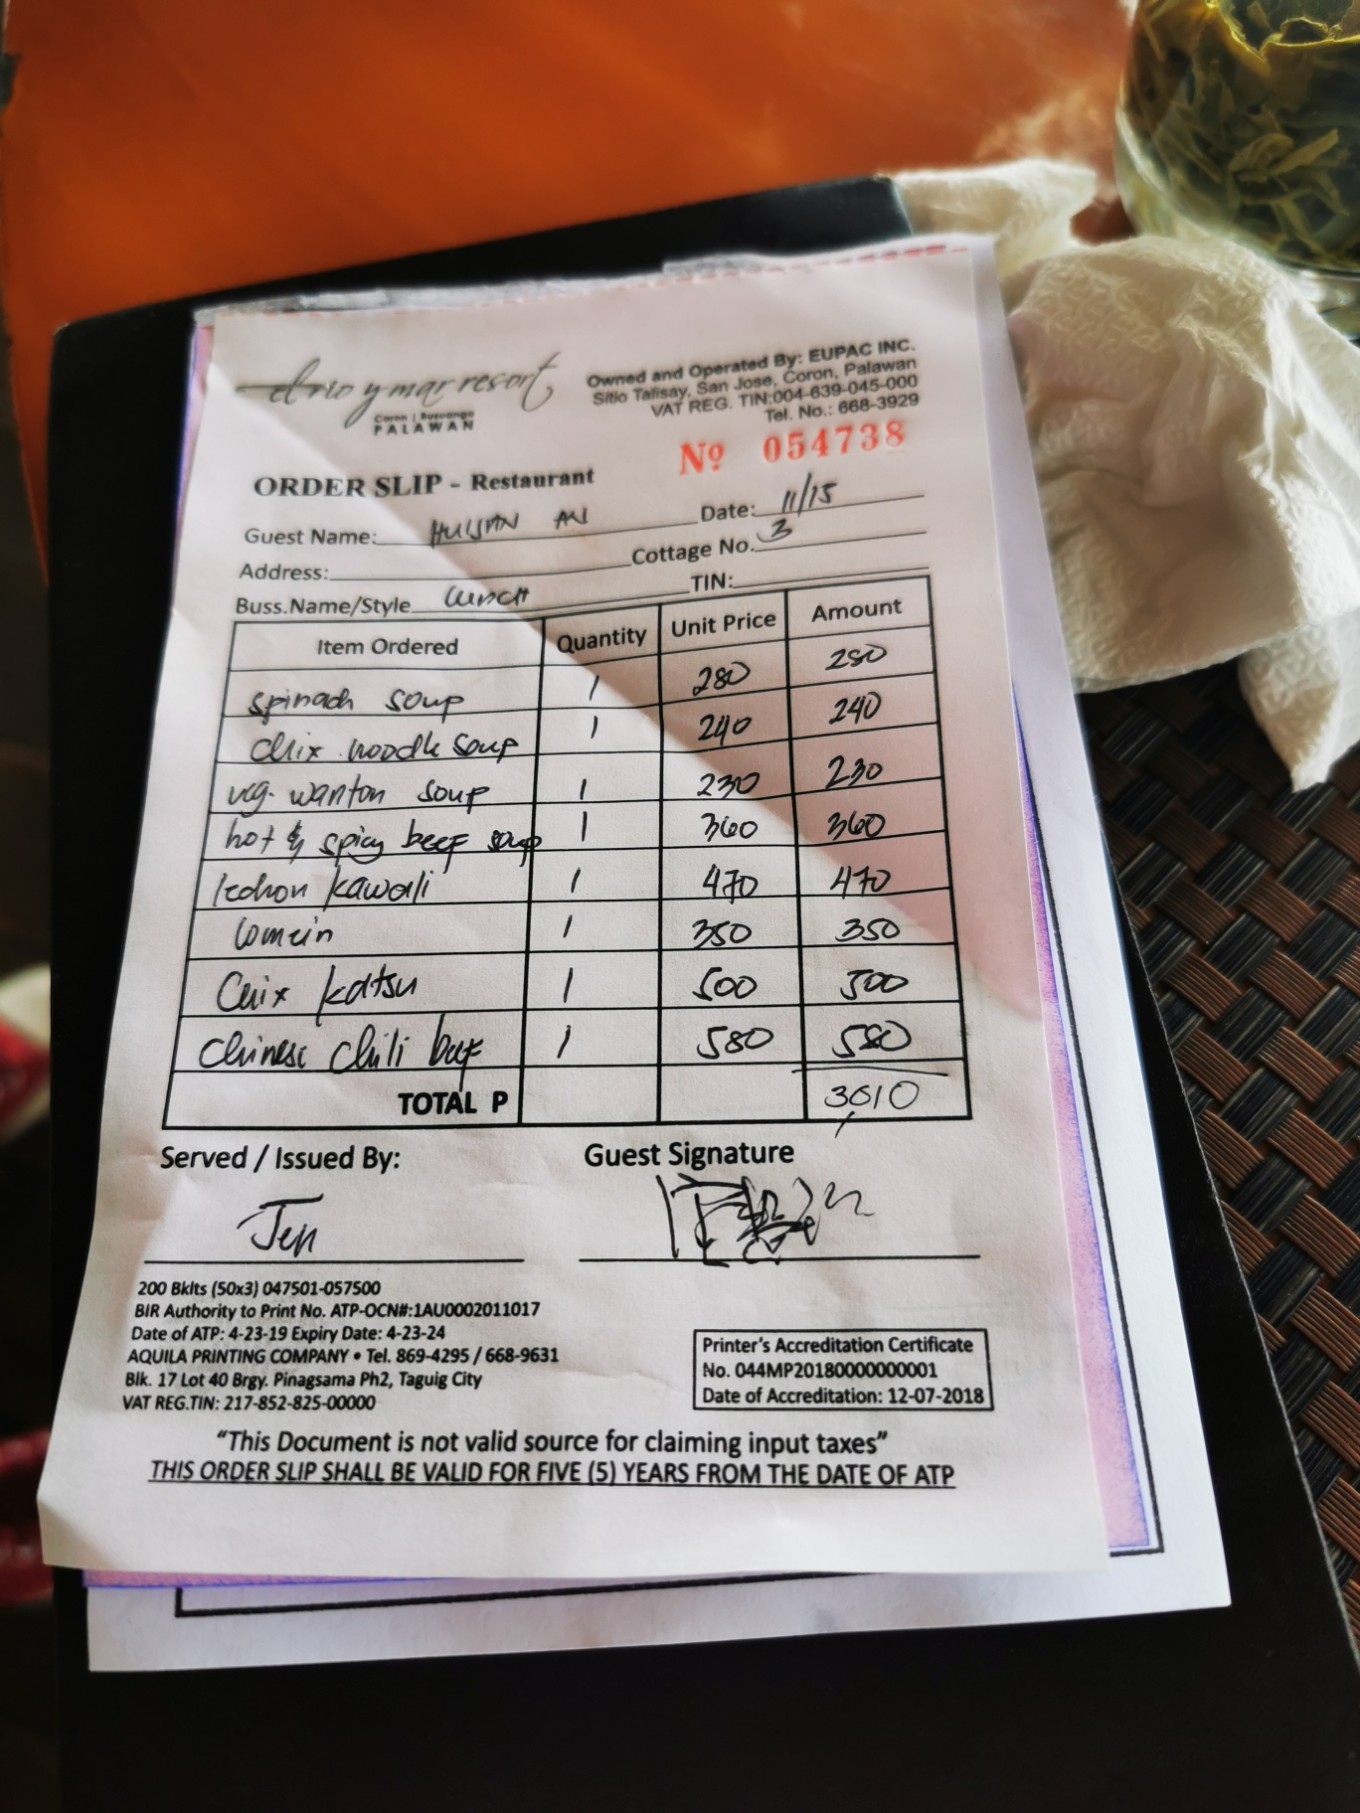 el rio y mar resort
Coron | Busuanga
PALAWAN
Owned and Operated By: EUPAC INC.
Sitio Talisay, San Jose, Coron, Palawan
VAT REG. TIN:004-639-045-000
Tel. No.: 668-3929
Nº 054738
ORDER SLIP - Restaurant
Guest Name: Date: 11/15
Address: Cottage No. 3
Buss.Name/Style Lunch TIN:
Item Ordered Quantity Unit Price Amount
spinach soup 1 280 280
chix noodle soup 1 240 240
veg. wanton soup 1 230 230
hot & spicy beef soup 1 360 360
lechon kawali 1 470 470
lomein 1 350 350
Chix katsu 1 500 500
chinese chili beef 1 580 580
TOTAL P 3010
Served / Issued By: Guest Signature
Jen
200 Bklts (50x3) 047501-057500
BIR Authority to Print No. ATP-OCN#:1AU0002011017
Date of ATP: 4-23-19 Expiry Date: 4-23-24
AQUILA PRINTING COMPANY • Tel. 869-4295 / 668-9631
Blk. 17 Lot 40 Brgy. Pinagsama Ph2, Taguig City
VAT REG.TIN: 217-852-825-00000
Printer's Accreditation Certificate
No. 044MP20180000000001
Date of Accreditation: 12-07-2018
"This Document is not valid source for claiming input taxes"
THIS ORDER SLIP SHALL BE VALID FOR FIVE (5) YEARS FROM THE DATE OF ATP